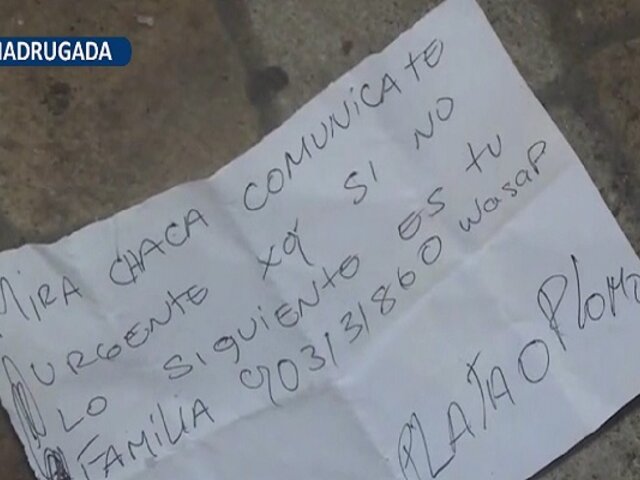 MADRUGADA
MIRA CHACA COMUNICATE
URGENTE XQ SI NO
LO SIGUIENTE ES TU
FAMILIA 903131860 WASAP
PLATA O PLOMO